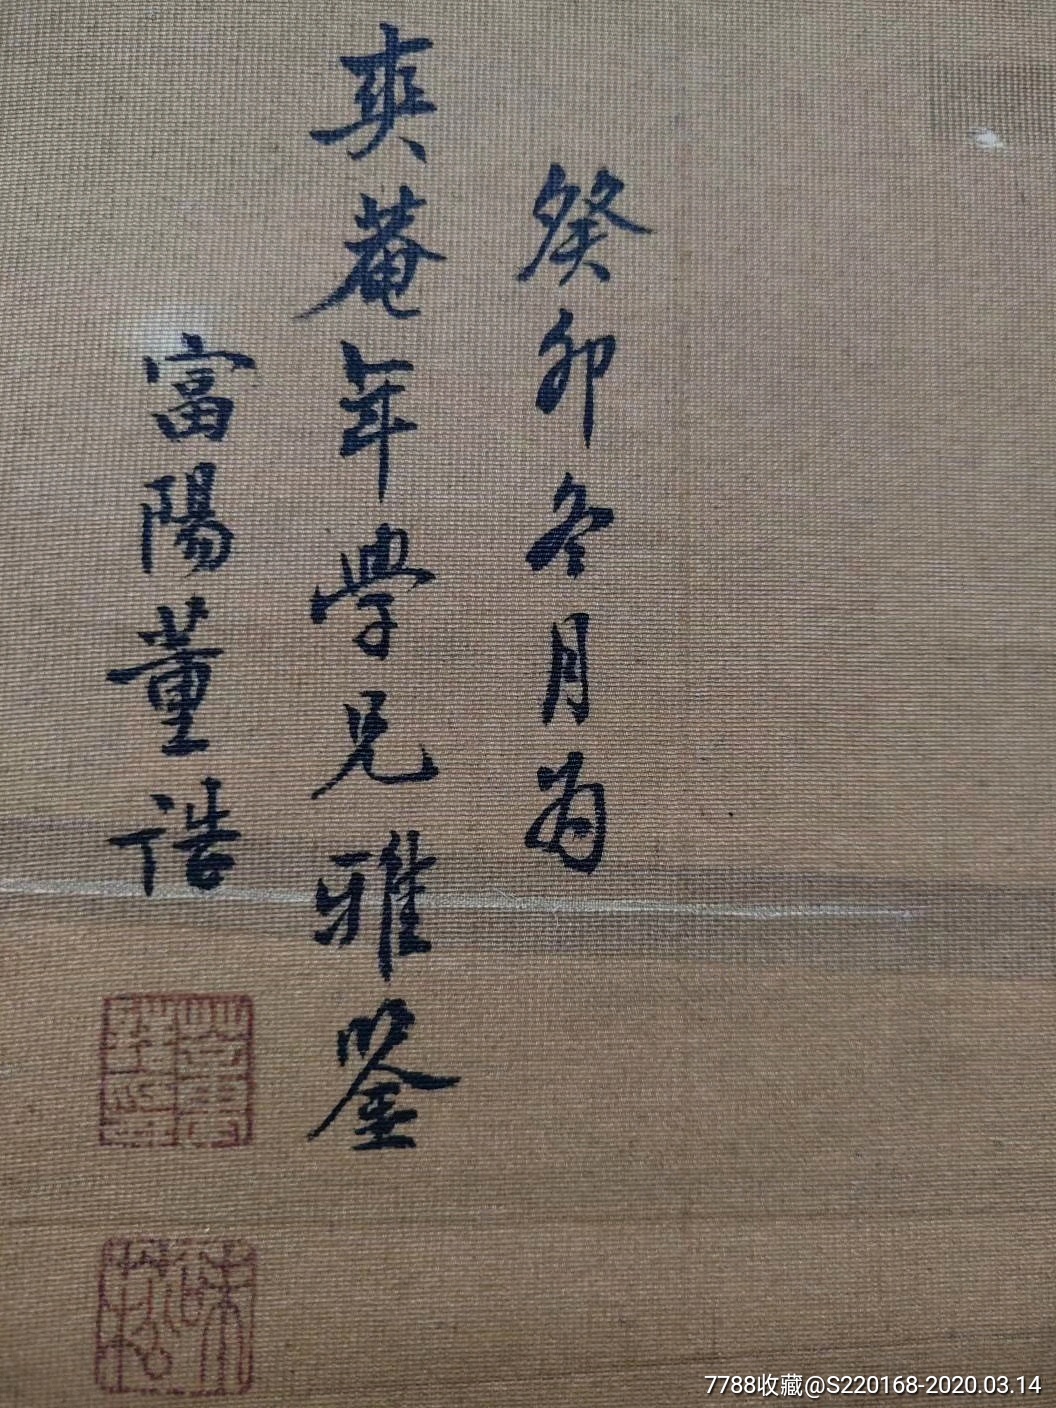 癸卯冬月为
爽菴年學兄雅鉴
富陽董誥
7788收藏@S220168-2020.03.14